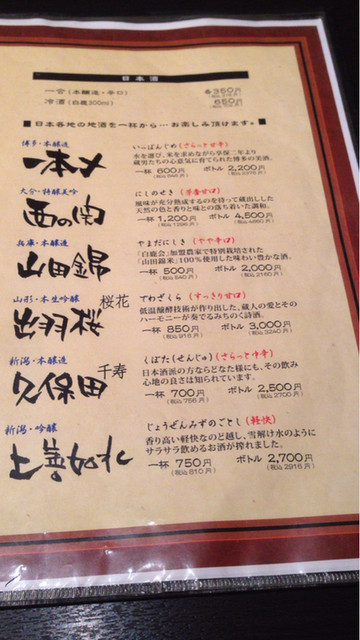 日本酒
一合(本醸造・辛口) 各350円
冷酒(白鹿300ml) 650円
■日本各地の地酒を一杯から…お楽しみ頂けます。■
博多・本醸造
一本〆
いっぽんじめ(さらっと甘辛)
水を選び、米を求めながら享保二年より
蔵男たちの心意気に育てられた博多の美酒。
一杯 600円 ボトル 2,200円
大分・特醸美吟
西の関
にしのせき(芳香甘口)
風味が充分熟成するのを待って蔵出しした
天然の色と香りと味との落ち着いた調和。
一杯 1,200円 ボトル 4,500円
(税込 1296円) (税込 4860円)
兵庫・本醸造
山田錦
やまだにしき(やや辛口)
「白鹿会」加盟農家で特別栽培された
「山田錦米」100%使用した味わい豊かな酒。
一杯 500円 ボトル 2,000円
(税込 540円) (税込 2160円)
山形・本生吟醸
出羽桜
桜花
でわざくら(すっきり甘口)
低温醗酵技術が作り出した、蔵人の愛とその
ハーモニーが奏でるみちのく詩酒。
一杯 850円 ボトル 3,000円
(税込 918円) (税込 3240円)
新潟・本醸造
久保田
千寿
くぼた(せんじゅ)(さらっと中辛)
日本酒派の方ならどなた様にも、その飲み
心地の良さは知られています。
一杯 700円 ボトル 2,500円
(税込 756円) (税込 2700円)
新潟・吟醸
上善如水
じょうぜんみずのごとし(軽快)
香り高い軽快なのど越し、雪解け水のように
サラサラ飲めるお酒が搾れました。
一杯 750円 ボトル 2,700円
(税込 810円) (税込 2916円)